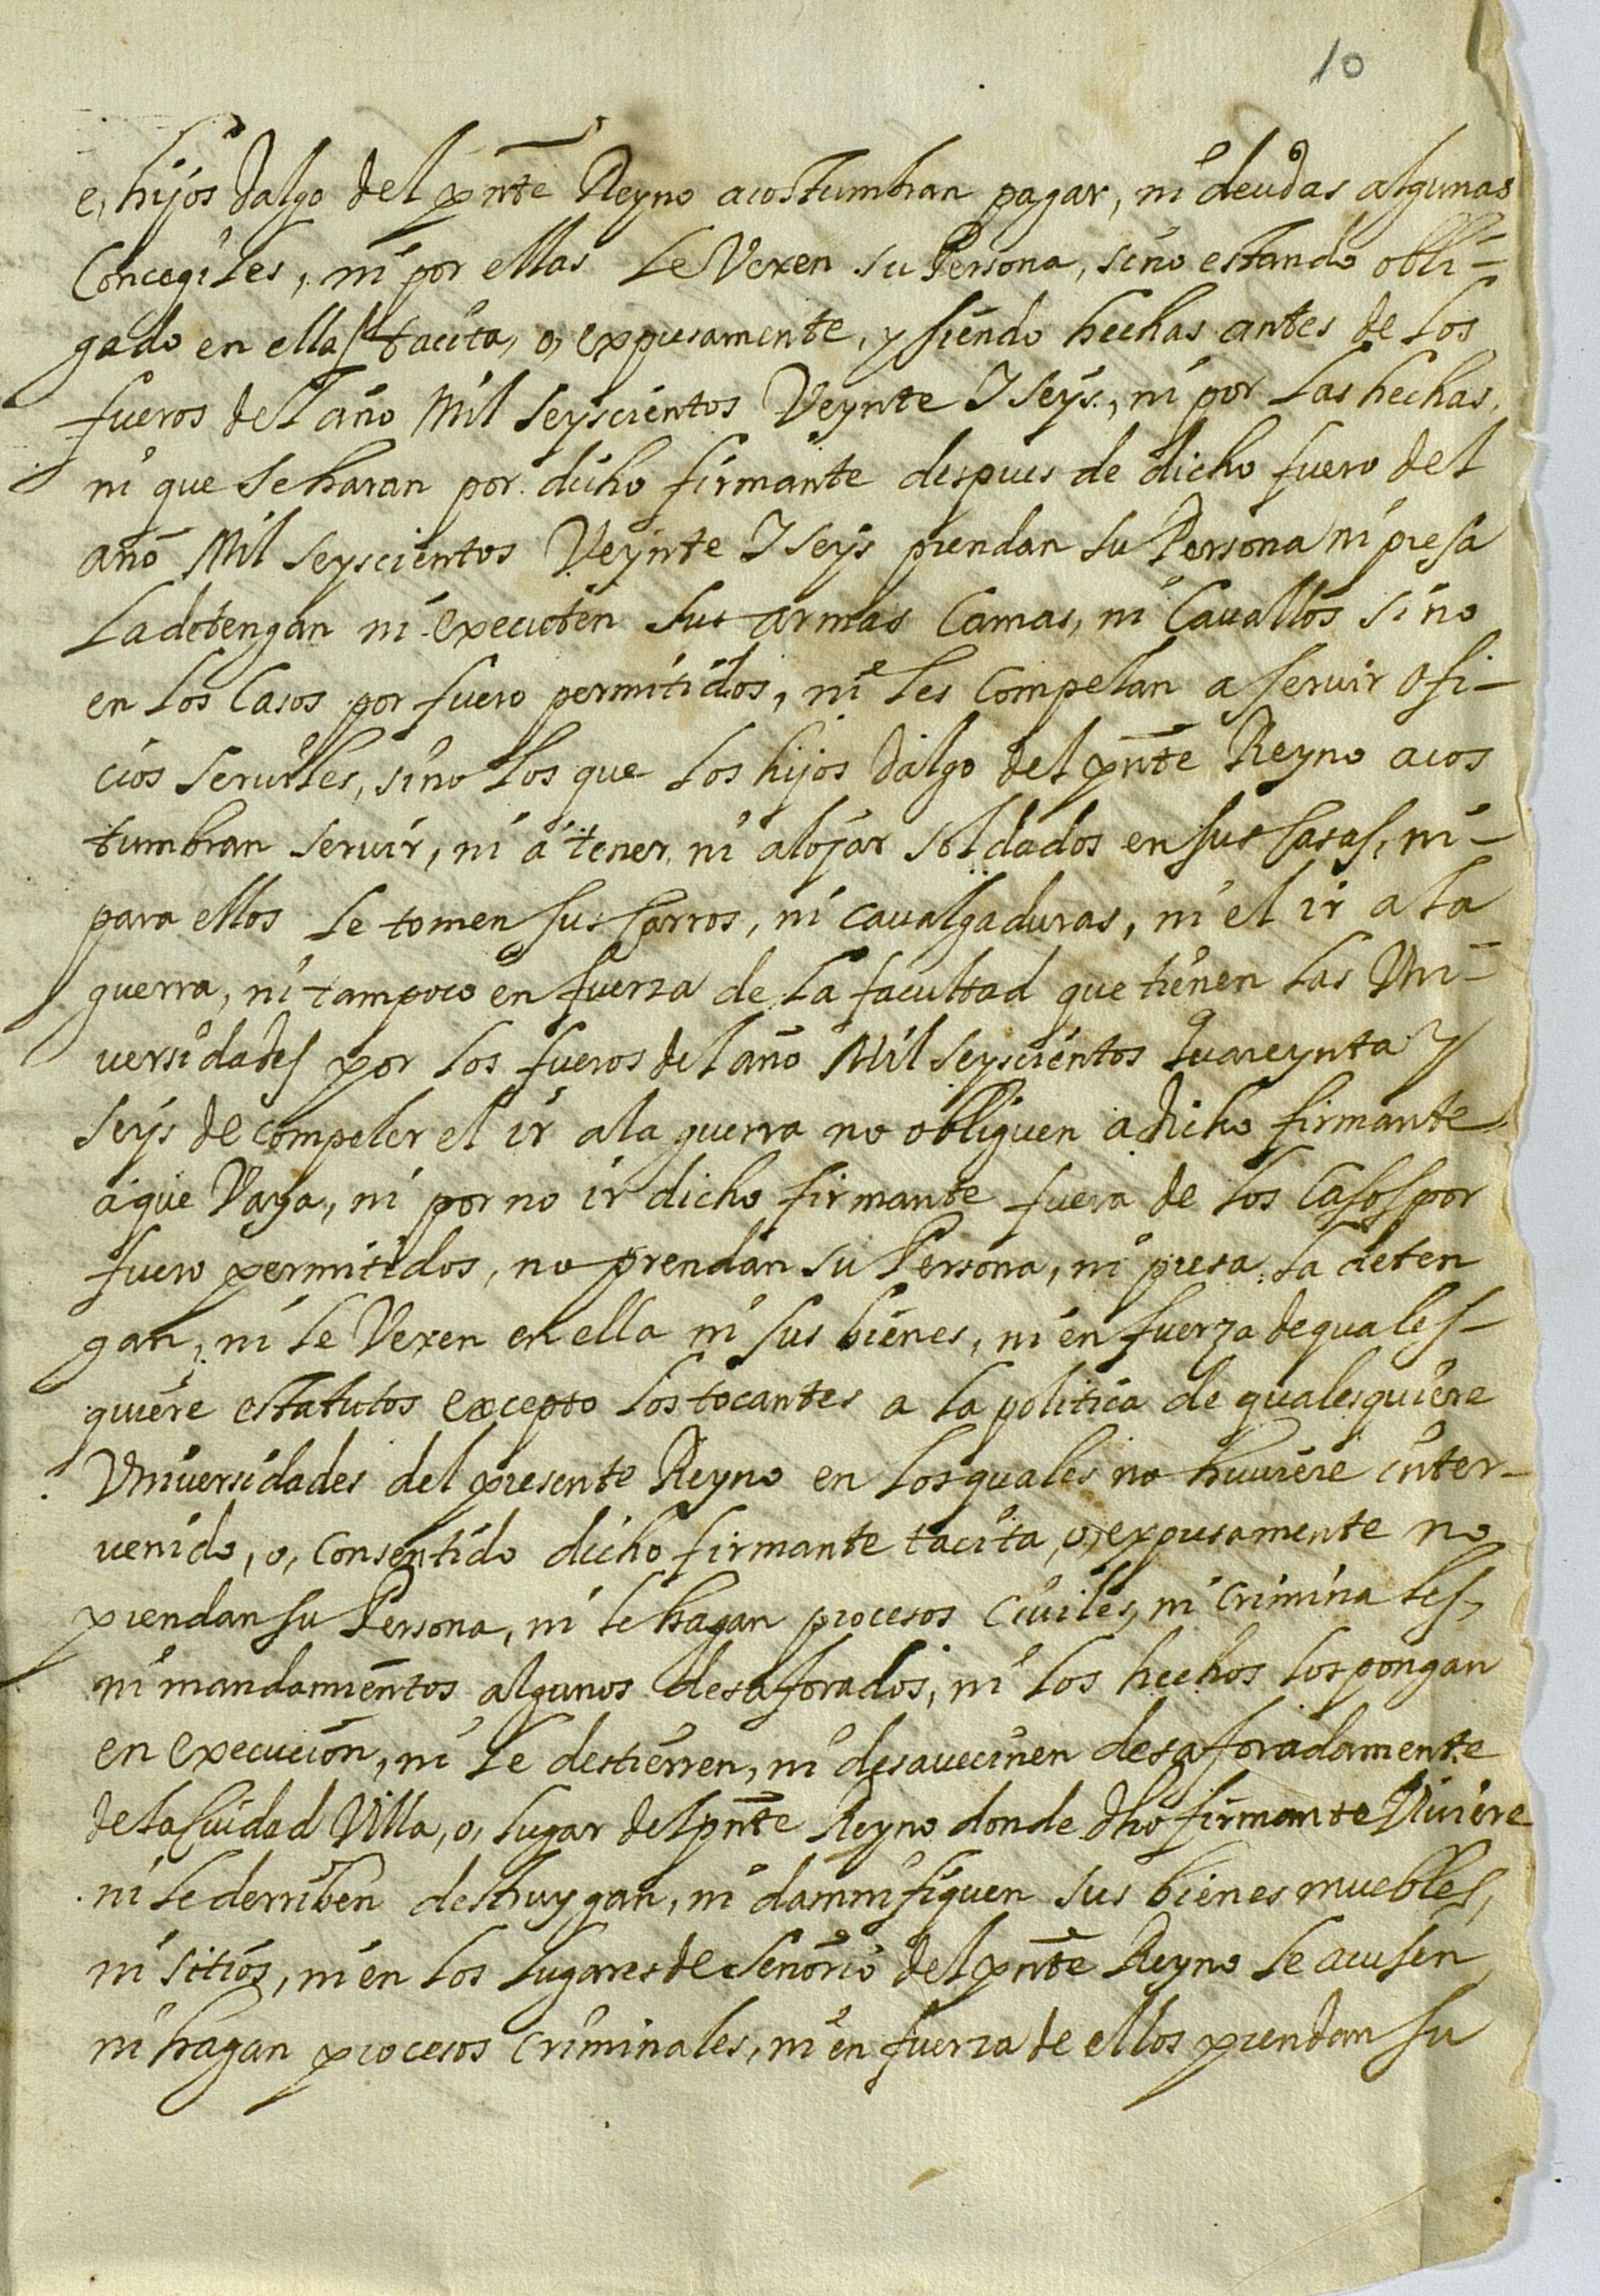 10
e, hijos dalgo del pnte Reyno acostumbran pagar, ni deudas algunas
Concegiles, ni por ellas le Vexen su Persona, sino estando obli-
gado en ellas tacita, o, expresamente, y siendo hechas antes de los
fueros del año Mil seyscientos Veynte Y seys, ni por las hechas,
ni que se haran por dicho firmante despues de dicho fuero del
año Mil seyscientos Veynte Y seys prendan su Persona ni presa
la detengan ni executen sus armas Camas, ni Cauallos sino
en los Casos por fuero permitidos, ni les Compelan a seruir ofi-
cios seruiles, sino los que los hijos dalgo del pnte Reyno acos
tumbran seruir, ni a tener, ni alojar soldados en sus Casas, ni-
para ellos le tomen sus Carros, ni caualgaduras, ni el ir a la
guerra, ni tampoco en fuerza de la facultad que tienen las Vni-
uersidades por los fueros del año Mil seyscientos quareynta Y
seys de compeler el ir a la guerra no obliguen a dicho firmante
a que Vaya, ni por no ir dicho firmante fuera de los Casos por
fuero permitidos, no prendan su Persona, ni presa la deten
gan, ni le Vexen en ella ni sus bienes, ni en fuerza de quales-
quiere estatutos excepto los tocantes a la politica de qualesquiere
Vniuersidades del presente Reyno en los quales no huuiere inter-
uenido, o, consentido dicho firmante tacita, o, expresamente no
prendan su Persona, ni le hagan procesos Ciuiles, ni Criminales,
ni mandamientos algunos desaforados, ni los hechos los pongan
en execucion, ni le destierren, ni desauecinen desaforadamente
de la Ciudad Villa, o, lugar del pnte Reyno donde dho firmante Viuiere
ni le derriben destruygan, ni damnifiquen sus bienes muebles,
ni sitios, ni en los lugares de señorio del pnte Reyno le acusen,
ni hagan procesos criminales, ni en fuerza de ellos prendan su